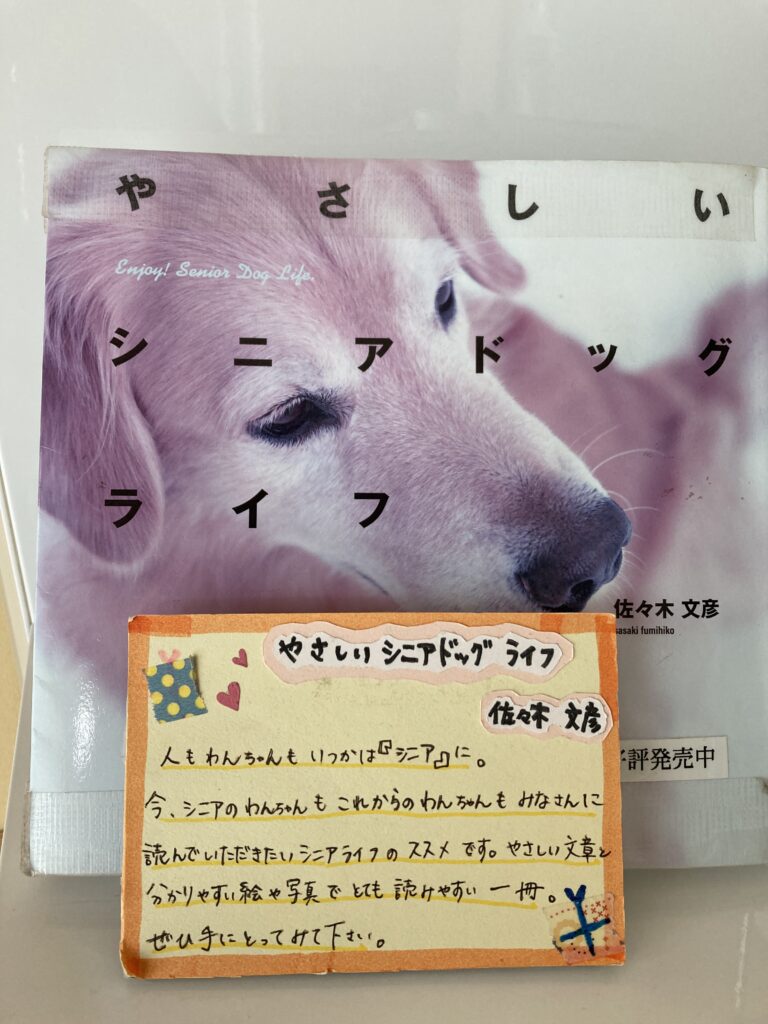 やさしい
Enjoy! Senior Dog Life.
シニアドッグ
ライフ
佐々木 文彦
sasaki fumihiko
評発売中
やさしい シニアドッグ ライフ
佐々木 文彦
人もわんちゃんも いつかは『シニア』に。
今、シニアのわんちゃんも これからのわんちゃんも みなさんに
読んでいただきたいシニアライフのススメです。やさしい文章と
分かりやすい絵や写真で とても 読みやすい 一冊。
ぜひ手にとってみて下さい。